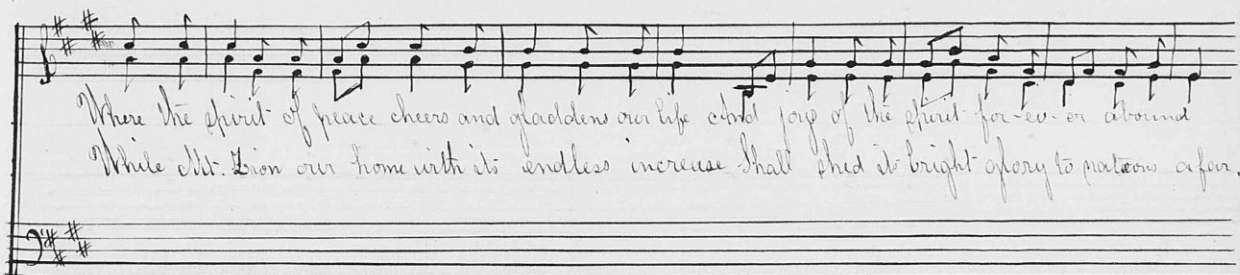 Where the spirit of peace cheers and gladdens our life And joys of the spirit for-ev-er abound
While Mt. Zion our home with its endless increase Shall shed its bright glory to nations afar.